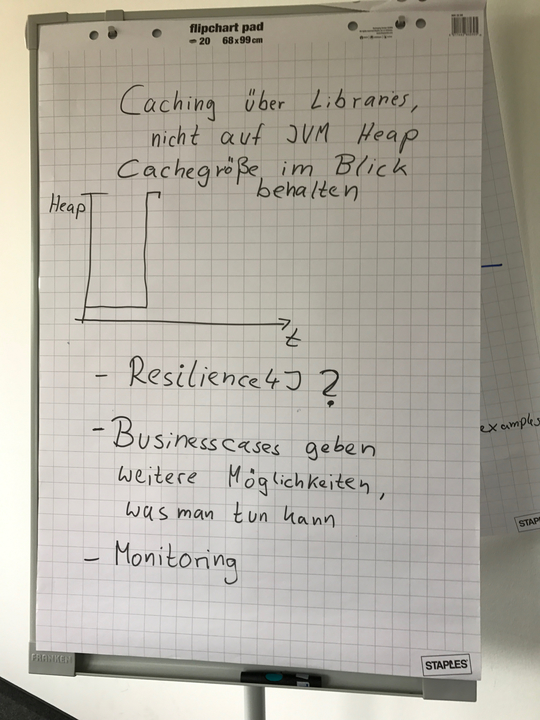 flipchart pad
20 68x99cm
Caching über Libraries,
nicht auf JVM Heap
Cachegröße im Blick
behalten
Heap
t
- Resilience4J ?
- Businesscases geben
weitere Möglichkeiten,
was man tun kann
- Monitoring
examples
STAPLES
FRANKEN
STAPLES